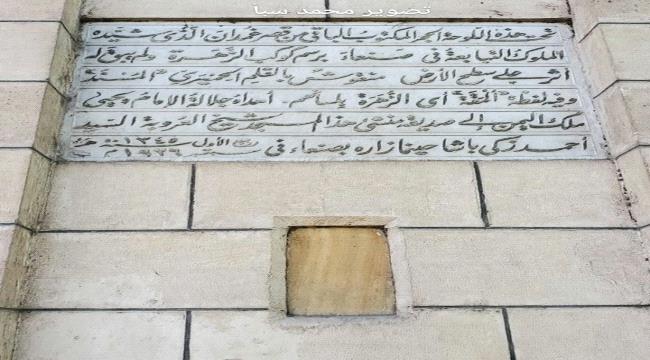 تصوير محمد سبا
تحت هذه اللوحة الحجر المكتوب الباقي من قصر غمدان الذي شيده
الملوك التبابعة في صنعاء برسم كوكب الزهرة ولم يبق له
أثر على سطح الأرض منقوش بالقلم الحميري المسند
وفيه لفظة أي الزهرة بلسانهم أهداه جلالة الإمام يحيى
ملك اليمن إلى صديقه منشئ هذا المسجد شيخ العروبة السيد
أحمد زكي باشا حينما زاره بصنعاء في ربيع الأول سنة ١٣٤٥ هـ سبتمبر ١٩٢٦ م